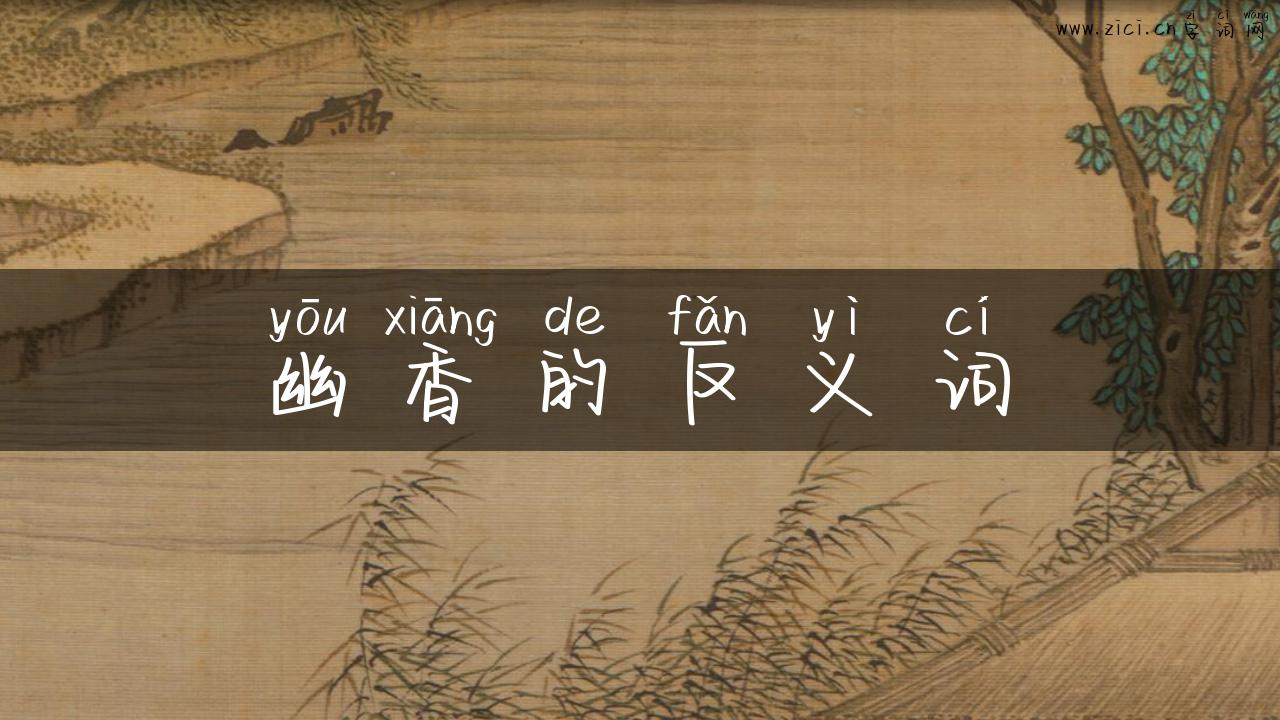 zì cí wǎng
www.zici.cn字词网
yōu xiāng de fǎn yì cí
幽香的反义词